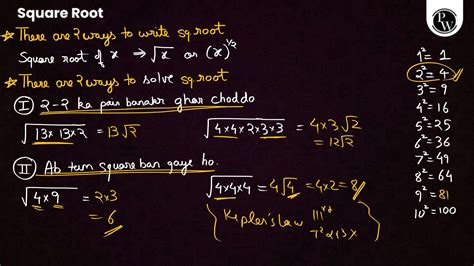 Square Root
PW
☆ There are 2 ways to write sq root
Square root of x → √x or (x)^1/2
☆ There are 2 ways to solve sq root
I 2-2 ka pair banakr ghar choddo
√13×13×2 = 13√2
√4×4×2×3×3 = 4×3√2
= 12√2
II Ab tum square ban gaye ho.
√4×9 = 2×3
= 6
√4×4×4 = 4√4 = 4×2 = 8
Kepler's law IIIrd
1² = 1
2² = 4
3² = 9
4² = 16
5² = 25
6² = 36
7² = 49
8² = 64
9² = 81
10² = 100